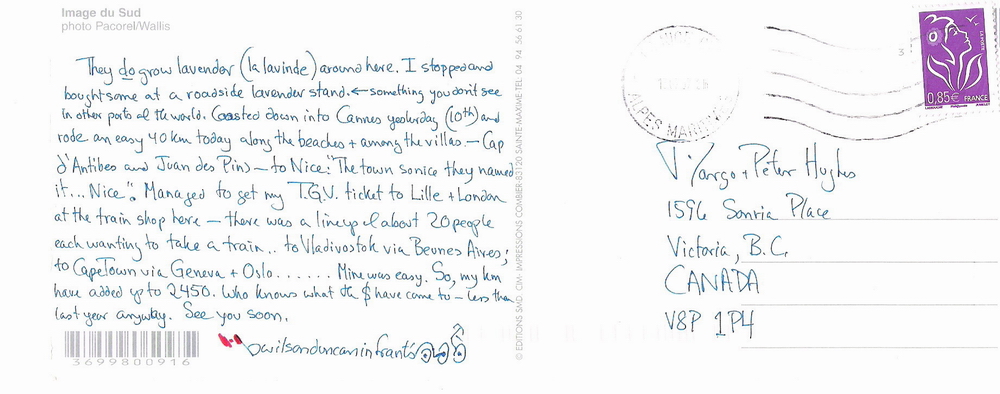 Image du Sud
photo Pacorel/Wallis
They do grow lavender (la lavinde) around here. I stopped and
bought some at a roadside lavender stand. ← something you don't see
in other parts of the world. Coasted down into Cannes yesterday (10th) and
rode an easy 40 km today along the beaches + among the villas — Cap
d'Antibes and Juan des Pins — to Nice. "The town so nice they named
it... Nice". Managed to get my T.G.V. ticket to Lille + London
at the train shop here — there was a lineup of about 20 people
each wanting to take a train.. to Vladivostok via Beunes Aires;
to Cape Town via Geneva + Oslo ...... Mine was easy. So, my km
have added up to 2450. Who knows what the $ have come to — less than
last year anyway. See you soon.
3699800916
© EDITIONS SMD. OM. IMPRESSIONS COMBIER 83120 SAINTE-MAXIME TEL 04 94 56 61 30
ALPES MARITIMES
LA POSTE
0,85€ FRANCE
Margo + Peter Hughes
1596 Sonria Place
Victoria, B.C.
CANADA
V8P 1P4